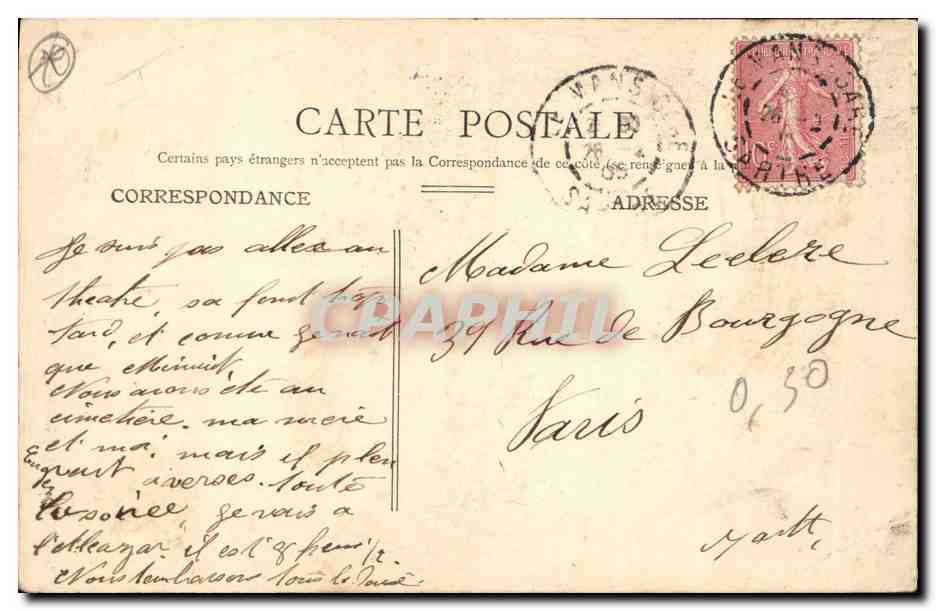 CARTE POSTALE
Certains pays étrangers n'acceptent pas la Correspondance de ce côté (se renseigner à la
CORRESPONDANCE
Je suis pas allez au
theatre, sa finit trop
tard, et comme
que Minuit
Nous avons été au
cimetière. ma mère
et moi. mais il pleu
vait averses. toute
la soirée, je vais a
l'alleazar. il est 8 heures 1/2
Nous t'embrassons tous
ADRESSE
Madame Leclere
39 Rue de Bourgogne
Paris
0,30
CPAPHIL
LE MANS-GARE
SARTHE